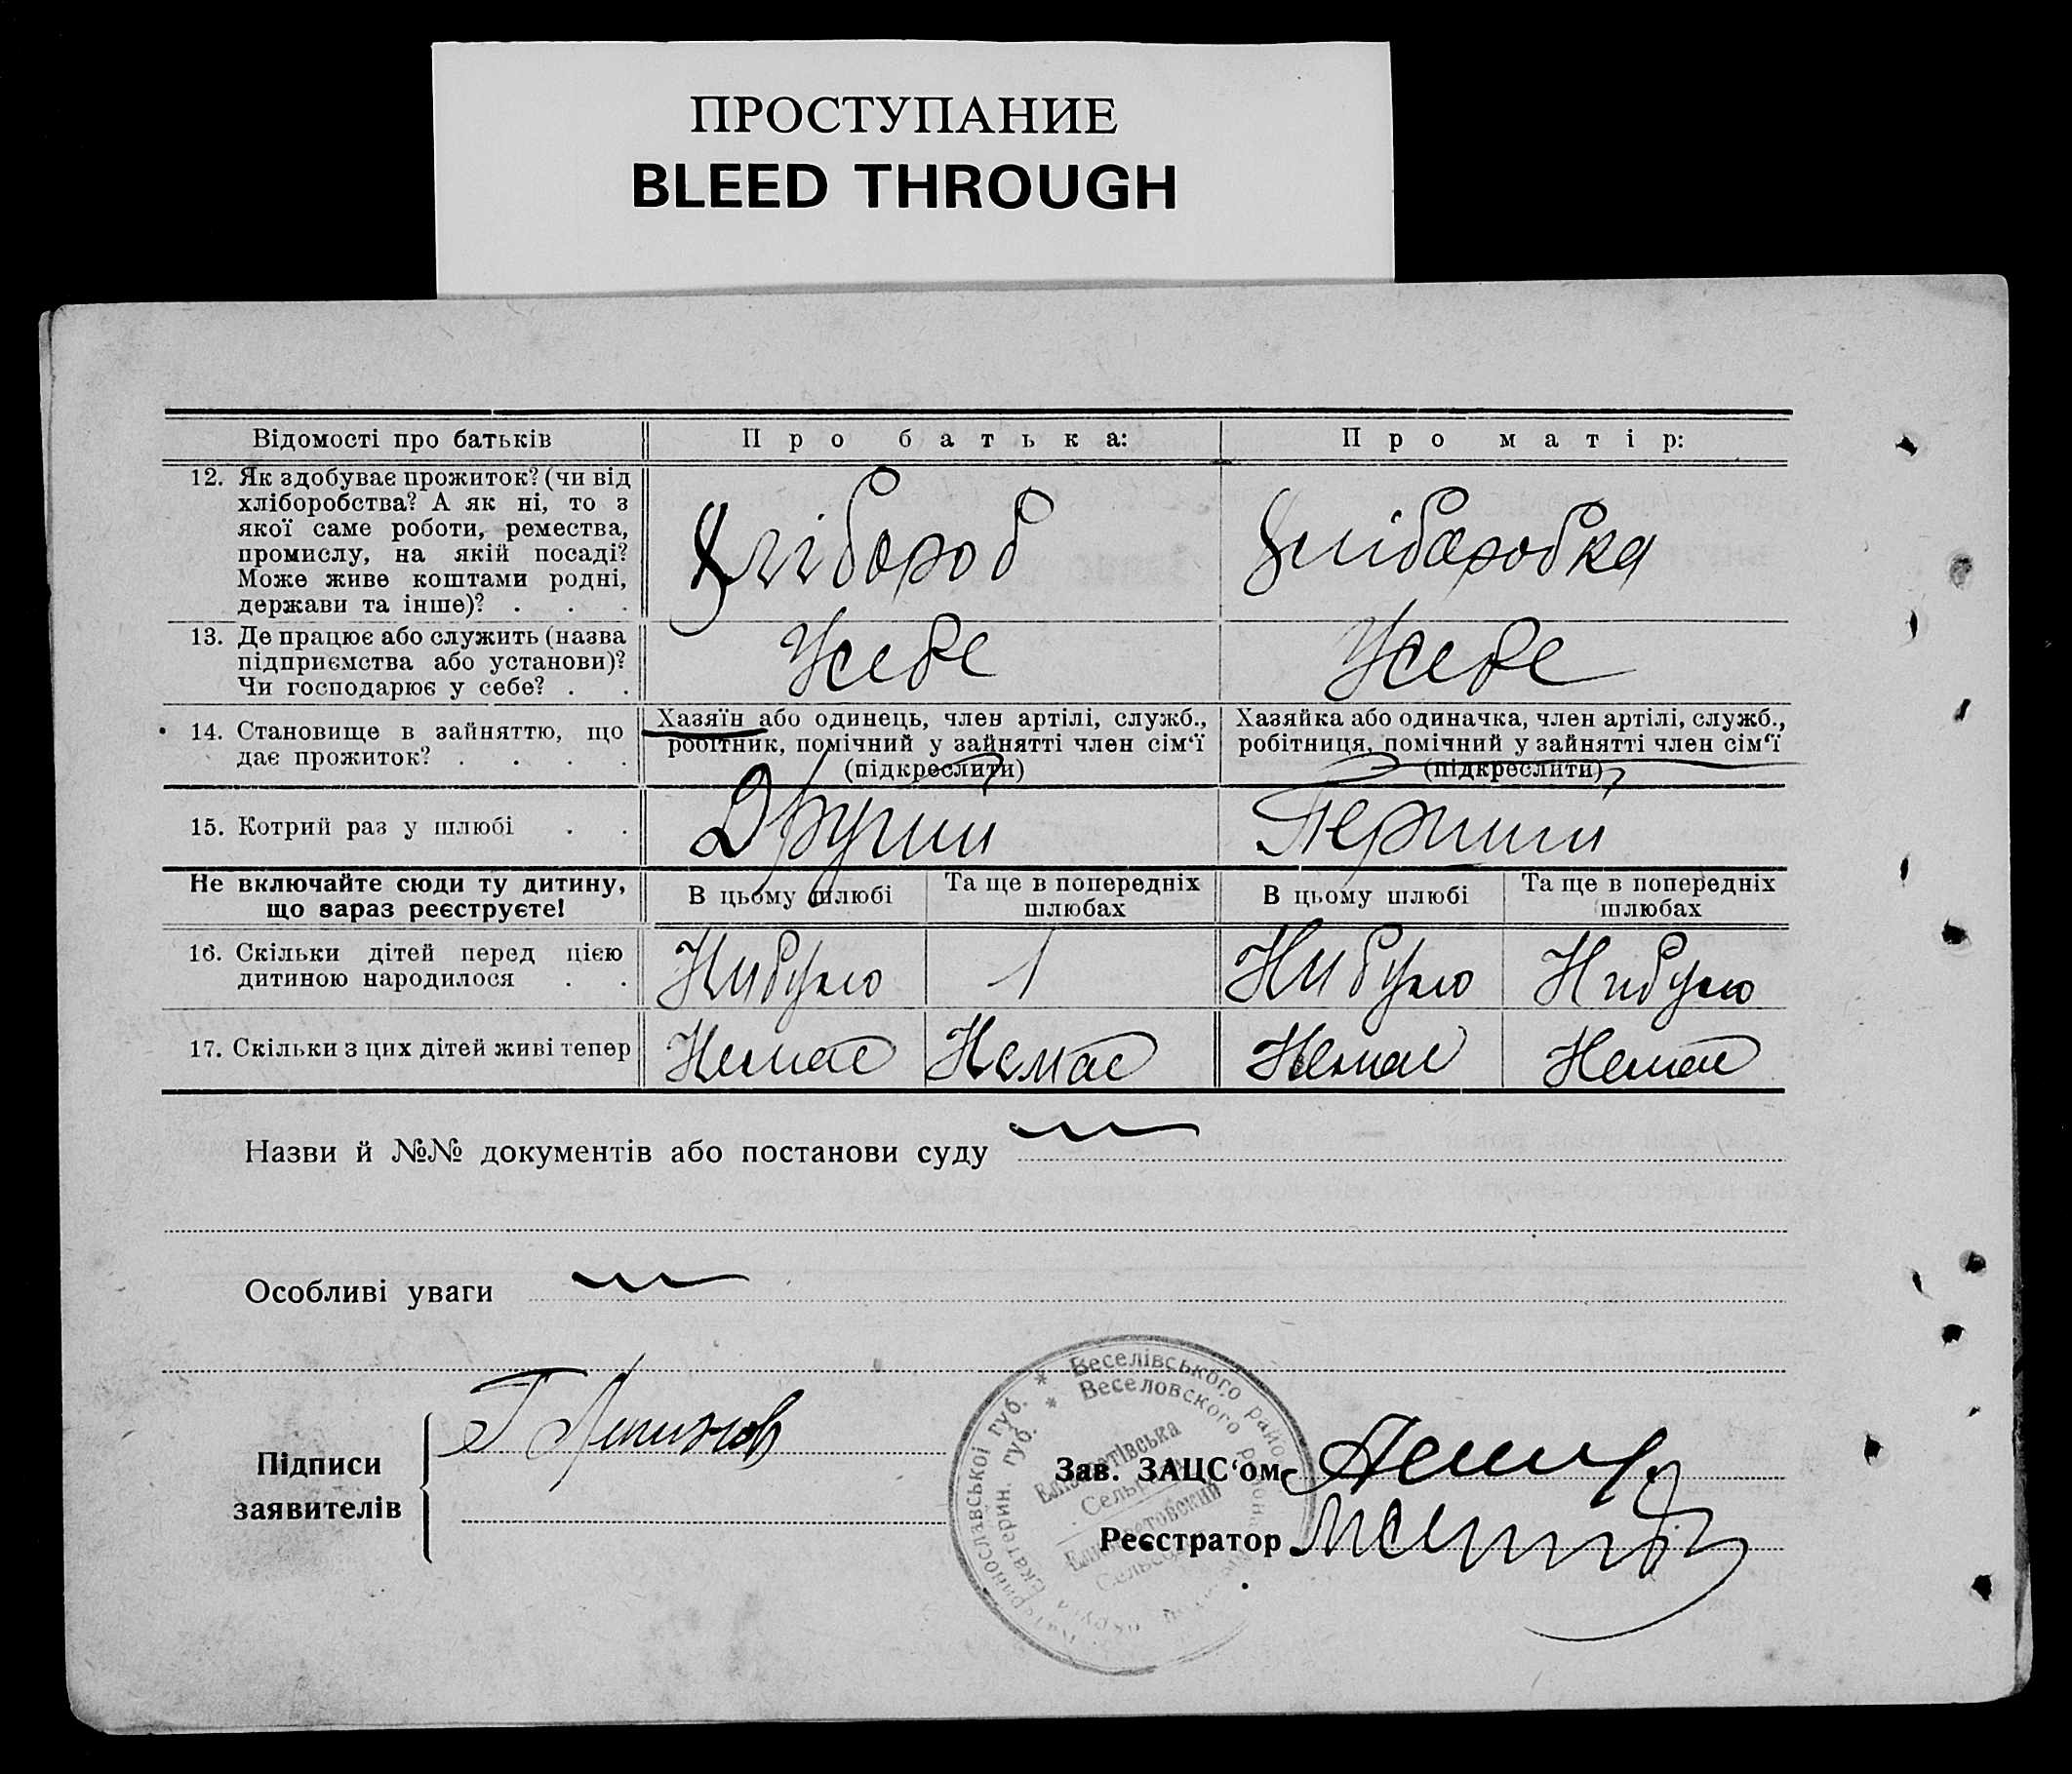 ПРОСТУПАНИЕ
BLEED THROUGH
Відомості про батьків
Про батька:
Про матір:
12. Як здобуває прожиток? (чи від
хліборобства? А як ні, то з
якої саме роботи, ремества,
промислу, на якій посаді?
Може живе коштами родні,
держави та інше)? . . .
Хлібороб
Хліборобка
13. Де працює або служить (назва
підприємства або установи)?
Чи господарює у себе? . .
У себе
У себе
14. Становище в зайняттю, що
дає прожиток? . . . .
Хазяїн або одинець, член артілі, служб.,
робітник, помічний у зайнятті член сім'ї
(підкреслити)
Хазяйка або одиначка, член артілі, служб.,
робітниця, помічний у зайнятті член сім'ї
(підкреслити)
15. Котрий раз у шлюбі . .
Другий
Перший
Не включайте сюди ту дитину,
що зараз реєструєте!
В цьому шлюбі
Та ще в попередніх
шлюбах
В цьому шлюбі
Та ще в попередніх
шлюбах
16. Скільки дітей перед цією
дитиною народилося . .
Нибуло
1
Нибуло
Нибуло
17. Скільки з цих дітей живі тепер
Немає
Немає
Немає
Немає
Назви й №№ документів або постанови суду
Особливі уваги
Підписи
заявителів
Зав. ЗАЦС'ом
Реєстратор
* Веселівського району
* Веселовского района
Катеринославської губ.
Екатерин. губ.
Елізаветівська
Сельрада
Елисаветовский
Сельсовет